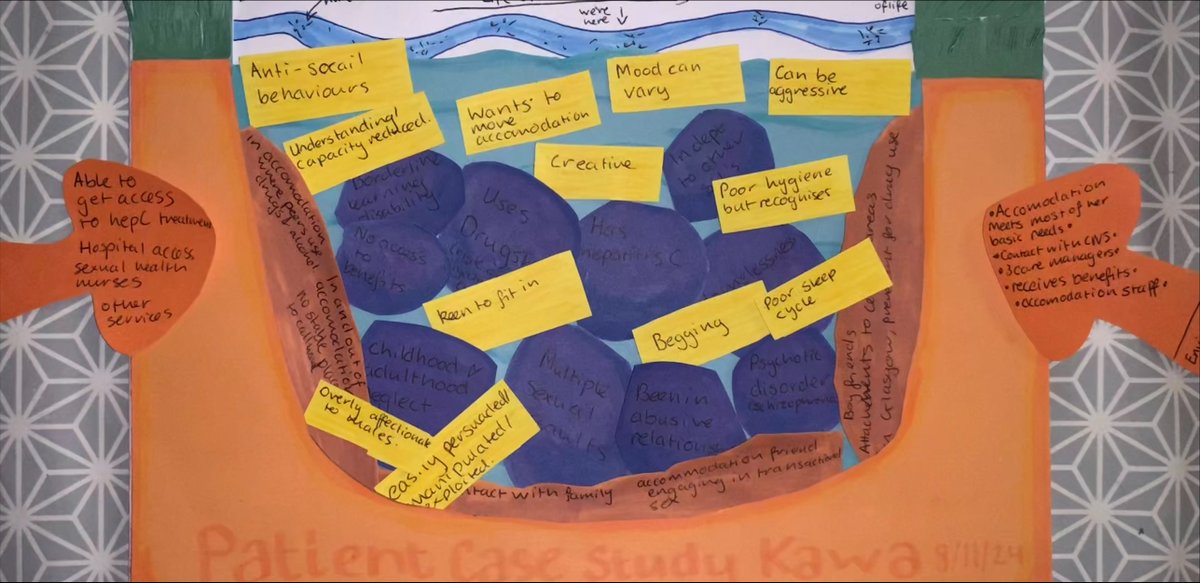 we're
here
of life
Anti-socail
behaviours
Understanding/
capacity reduced.
Wants to
move
accomodation
Mood can
vary
Can be
aggressive
Creative
Poor hygiene
but recognises
Keen to fit in
Begging
Poor sleep
cycle
Overly affectionate
to males.
easily persuaded/
manipulated/
exploited.
Borderline
learning
disability
Uses
Drugs
In dept
to other
No access
to
benefits
Has
C
Childhood /
adulthood
neglect
Multiple
Sexual
Been in
abusive
Psychotic
disorder
(schizophrenia)
In accomodation
where peers use
drugs/alcohol
In and out of
accomodation
no stable
to call
with family
accommodation friend
engaging in transactional
sex
Boyfriends
Attachements to areas
in Glasgow, for drug use
Able to
get access
to hepC treatment
Hospital access
sexual health
nurses
other
services
• Accomodation
meets most of her
basic needs •
• Contact with CNS •
• 3 care managers •
• receives benefits •
• accomodation staff •
Patient Case Study Kawa 9/11/24